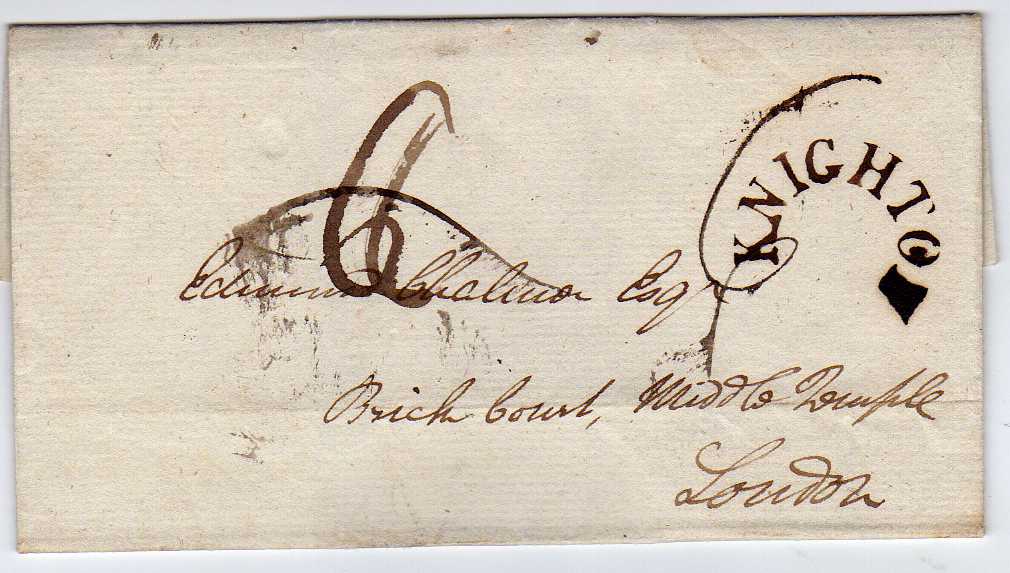 6
KNIGHTO
Edmund Chalmer Esqr
Brick Court, Middle Temple
London